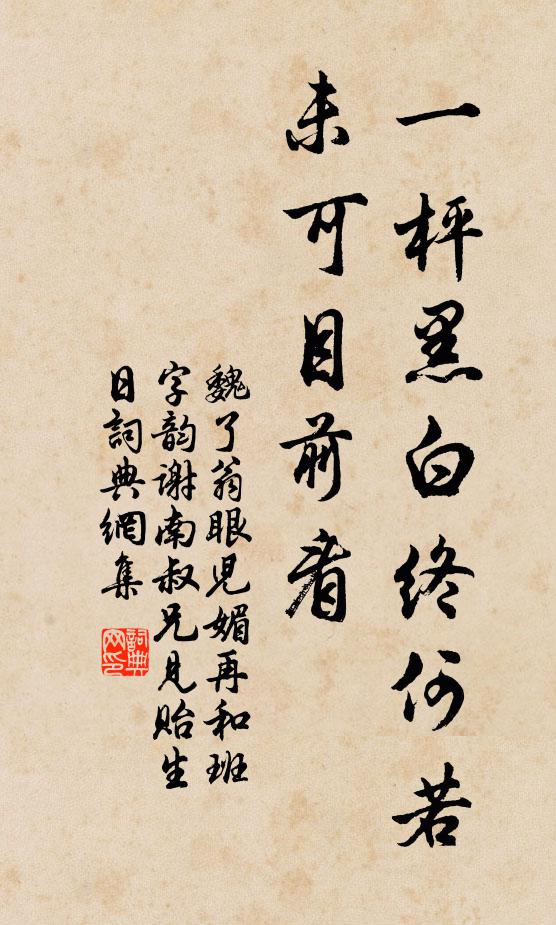 一枰黑白終何若
未可目前看
魏了翁眼児媚再和班
字韵谢南叔兄見貽生
日詞典網集
詞典網印